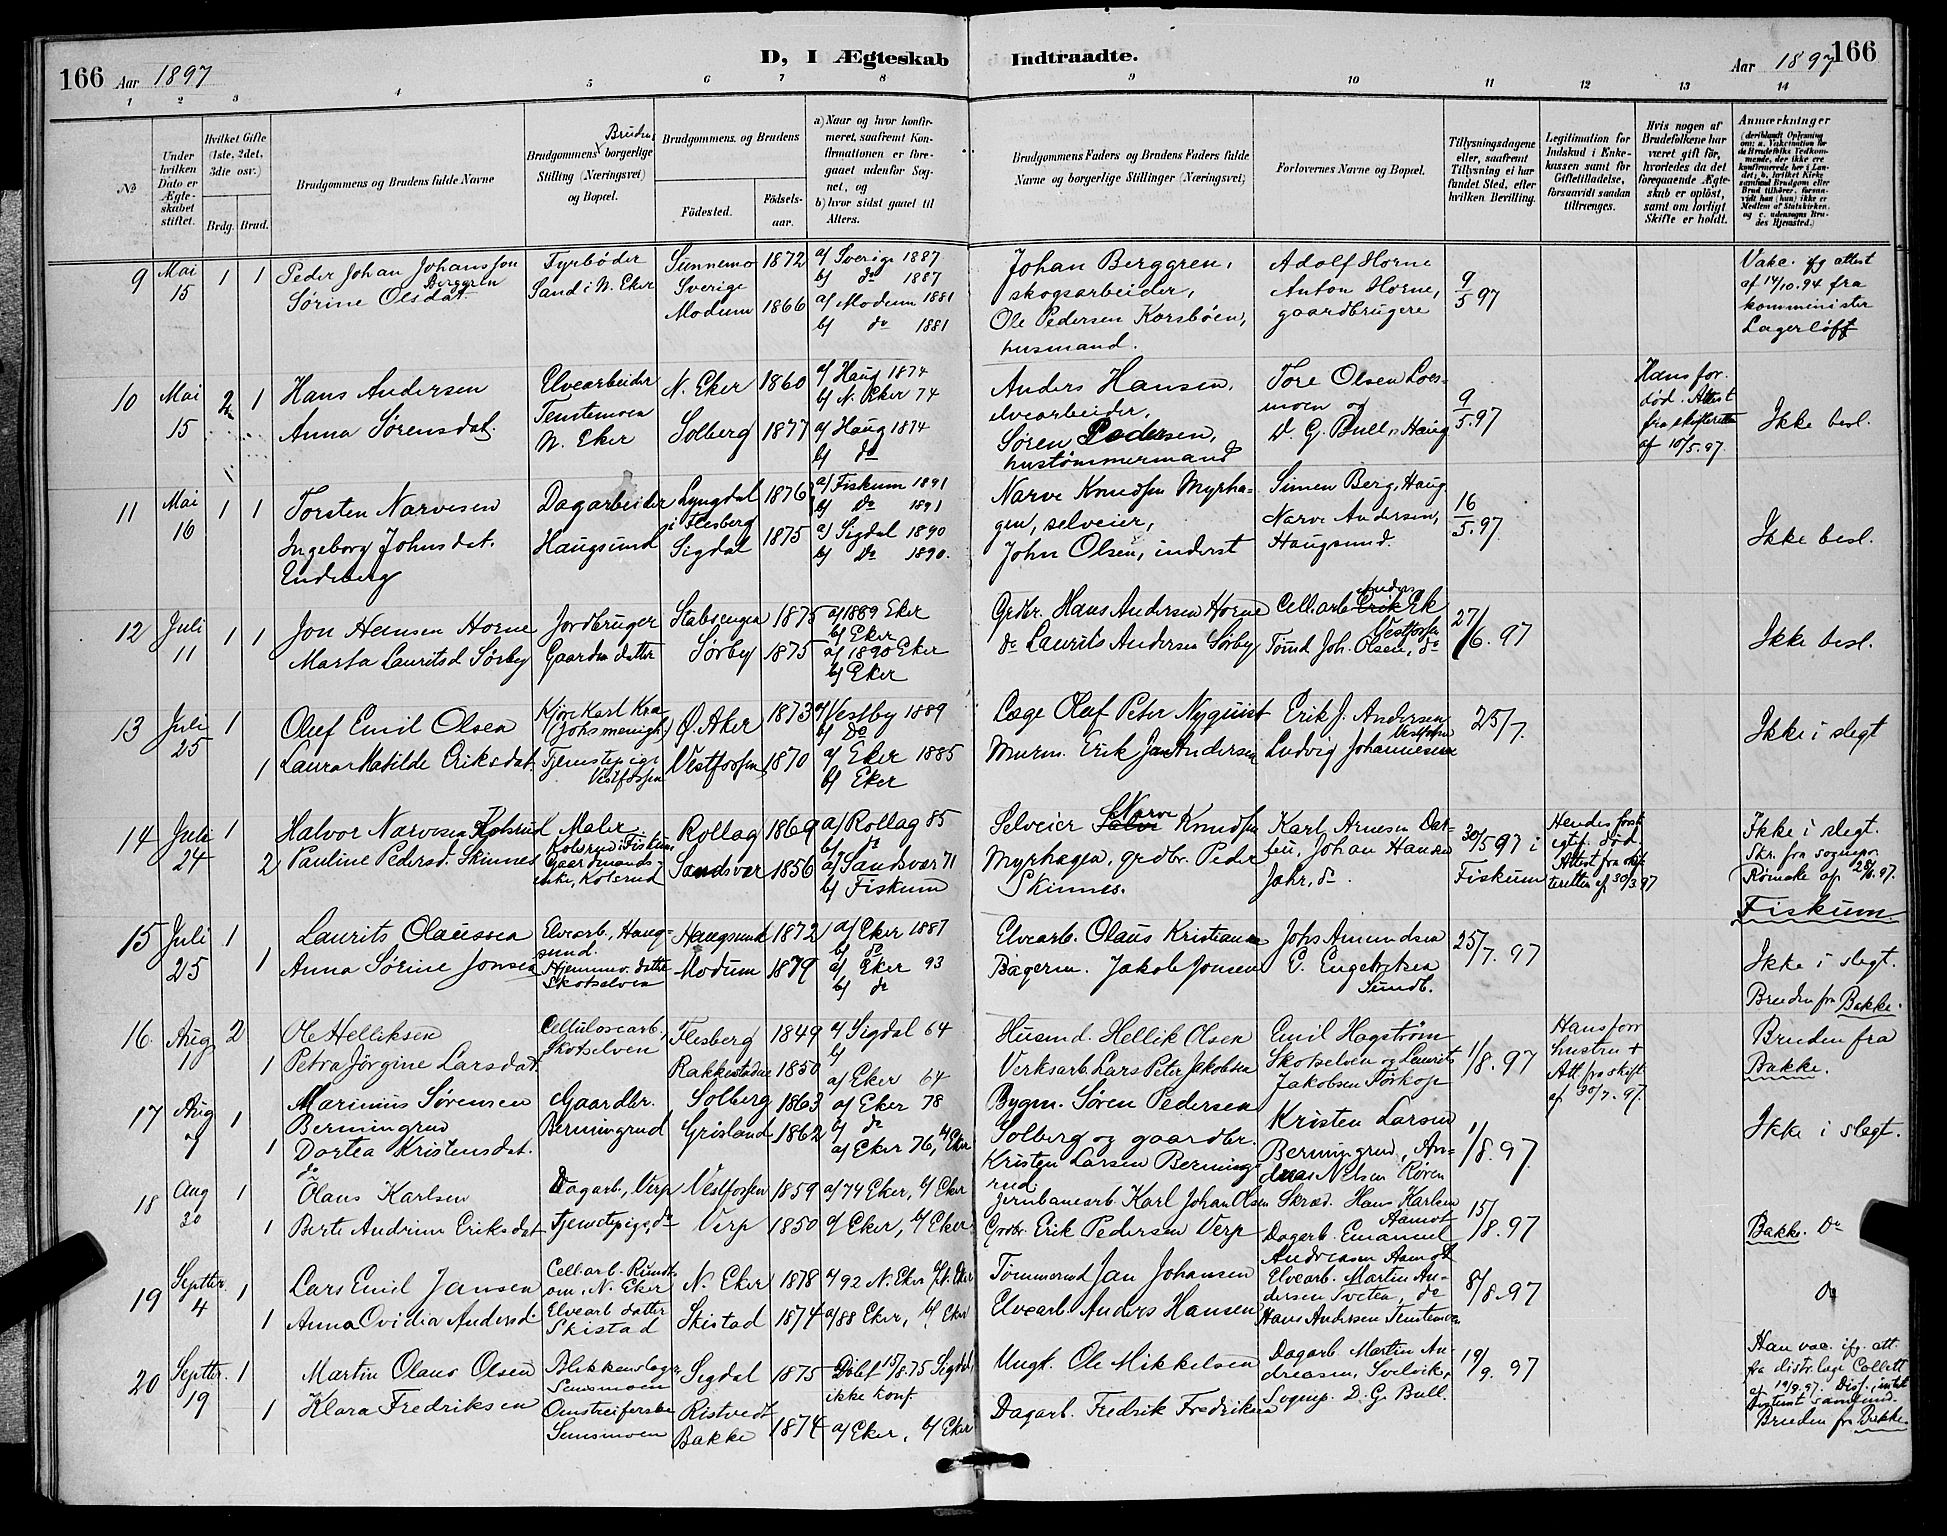 166 Aar 1897 D, I Ægteskab Indtraadte. Aar 1897 166
1 2 3 4 5 6 7 8 9 10 11 12 13 14
No
Under hvilken Dato er Ægteskabet stiftet.
Hvilket Gifte (1ste, 2det, 3die osv.)
Brdg. Brud.
Brudgommens og Brudens fulde Navne
Brudgommens Brudens borgerlige Stilling (Næringsvei) og Bopæl.
Brudgommens og Brudens
Fødested. Fødselsaar.
a) Naar og hvor konfirmeret, saafremt Konfirmationen er foregaaet udenfor Sognet, og
b) hvor sidst gaaet til Alters.
Brudgommens Faders og Brudens Faders fulde Navne og borgerlige Stillinger (Næringsvei)
Forlovernes Navne og Bopæl.
Tillysningsdagene eller, saafremt Tillysning ei har fundet Sted, efter hvilken Bevilling.
Legitimation for Indskud i Enkekassen samt for Giftetilladelse, forsaavidt saadan tiltrænges.
Hvis nogen af Brudefolkene har været gift før, hvorledes da det foregaaende Ægteskab er opløst, samt om lovligt Skifte er holdt.
Anmærkninger
9 Mai 15 1 1 Peder Johan Johansson Berggren Fyrbøder Sunnemo Sverige 1872 a/ Sverige 1887 b/ do 1887
Sørine Olsdat. Sand i N. Eker Modum 1866 a/ Modum 1881 b/ do 1881
Johan Berggren, skogsarbeider, Adolf Horne
Ole Pedersen Korsbøen, husmand. Anton Horne, gaardbrugere 9/5 97
Vakc. ifg attest af 14/10.94 fra komminister Lagerløff
10 Mai 15 2 1 Hans Andersen Elvearbeider N. Eker 1860 a/ Haug 1874 b/ N. Eker 74
Anna Sørensdat. Tenstemoen N. Eker Solberg 1877 a/ Haug 1874 b/ do
Anders Hansen, elvearbeider, Tore Olsen Loesmoen og
Søren Pedersen, hustømmermand D. G. Bull, Haug 9/5.97
Hans for. død. Attest fra skifteretten af 10/5.97. Ikke besl.
11 Mai 16 1 1 Torsten Narvesen Dagarbeider Lyngdal i Flesberg 1876 a/ Fiskum 1891 b/ do 1891
Ingeborg Johnsdat. Endeberg Haugsund Sigdal 1875 a/ Sigdal 1890 b/ do 1890.
Narve Knudsen Myrhagen, selveier, Simen Berg, Haug
John Olsen, inderst Narve Andersen, Haugsund. 16/5.97 Ikke besl.
12 Juli 11 1 1 Jon Hansen Horne Jordbruger Stabsengen 1875 a/ 1889 Eker b/ Eker
Marta Lauritsd Sørby Gaardm datter Sørby 1875 a/ 1890 Eker b/ Eker
Grdbr. Hans Andersen Horne Cell.arb. Anders Ek Vestfossen
do Laurits Andersen Sørby Tømd Joh. Olsen, do 27/6.97 Ikke besl.
13 Juli 25 1 Oluf Emil Olsen Kjørekarl Kra Ø. Aker 1873 a/ Vestby 1889 b/ do
1 Laura Matilde Eriksdat. Tjenestepige Vestfossen Vestfossen 1870 a/ Eker 1885 b/ Eker
Læge Olaf Peter Nyquist Erik J. Andersen Vestfossen
Murm. Erik Jan Andersen Ludvig Johannesen 25/7 Ikke i slegt
14 Juli 24 1 Halvor Narvesen Kolsrud Maler Kolsrud i Fiskum Rollag 1869 a/ Rollag 85 b/ do
2 Pauline Pedersd. Skinnes Gaardmandsenke, Kolsrud Sandsvær 1856 a/ Sandsvær 71 b/ Fiskum
Selveier Narve Knudsen Karl Arnesen Darbu, Johan Hansen
Myrhagen, grdbr. Peder Skinnes. Jahr, do. 30/5 97 i Fiskum
Hendes forst egtef. død Attest fra skifteretten af 30/3 97
Ikke i slegt. Skr. fra sognepr. Rømcke af 28/6.97. Fiskum
15 Juli 25 1 Laurits Olaussen Elvearb., Haugsund. Haugsund 1872 a/ Eker 1887 b/ do
1 Anna Sørine Jonsen Hjemmev. datter Skotselven Modum 1879 a/ Eker 93 b/ do
Elvearb. Olaus Kristiansen Johs Amundsen
Bagerm. Jakob Jonsen E. Engebretsen Sundb. 25/7.97
Ikke i slegt. Bruden fra Bakke.
16. Aug 10 2 Ole Helliksen Cellulosearb., Skotselven Flesberg 1849 a/ Sigdal 64 b/
1 Petra Jørgine Larsdat. Rakkestadne 1850 a/ Eker 64
Husmd. Hellik Olsen Emil Hagstrøm
Verksarb. Lars Peter Jakobsen Skotselven og Laurits Jakobsen Torkop 1/8.97
Hans forr hustru + Att. fra skift af 30/7.97. Bruden fra Bakke.
17 Aug 9 1 Marinius Sørensen Bermingrud Gaardbr. Solberg 1863 a/ Eker 78 b/ do
1 Dortea Kristensdat. do Bermingrud Grisland 1862 a/ Eker 76, b/ Eker
Bygm. Søren Pedersen Solberg og gaardbr. Kristen Larsen
Kristen Larsen Bermingrud Bermingrud, Andreas Nilsen Røren 1/8.97. Ikke i slegt.
18 Aug 30 1 Olaus Karlsen Dagarb., Verp Vestfossen 1859 a/ 74 Eker, b/ Eker
1 Berte Andrine Eriksdat Tjenestepige, do Verp 1850 a/ Eker, b/ Eker
Jernbanearb. Karl Johan Olsen Skræd. Hans Karlsen Aamot
Grdbr. Erik Pedersen Verp Dagarb. Emanuel Andreasen Aamot 15/8.97 Bakke. Do
19 Septbr. 4 1 Lars Emil Jansen Cell.arb. N. Eker N. Eker 1878 a/ 92 N. Eker b/ N. Eker
1 Anna Ovidia Andersd. Elvearb datter Skistad Skistad 1874 a/ 88 Eker, b/ Eker
Tømmermd Jan Johansen Elvearb. Martin Andersen Svetta, do
Elvearb. Anders Hansen Hans Andersen Tenstemoen 8/8.97 Do
20 Septbr. 19 1 Martin Olaus Olsen Blikkenslager Semsmoen Sigdal 1875 Døbt 15/8.75 Sigdal, ikke konf
1 Klara Fredriksen Omstreiferske Semsmoen Ristvedt Bakke 1874 a/ Eker, b/ Eker
Ungk. Ole Mikkelsen Dagarb. Martin Andreasen, Svelvik,
Dagarb. Fredrik Fredriksen Sognep. D. G. Bull. 19/9.97
Han vac. ifg. att. fra distr.læge Collett af 19/9.97. Bruden fra Bakke